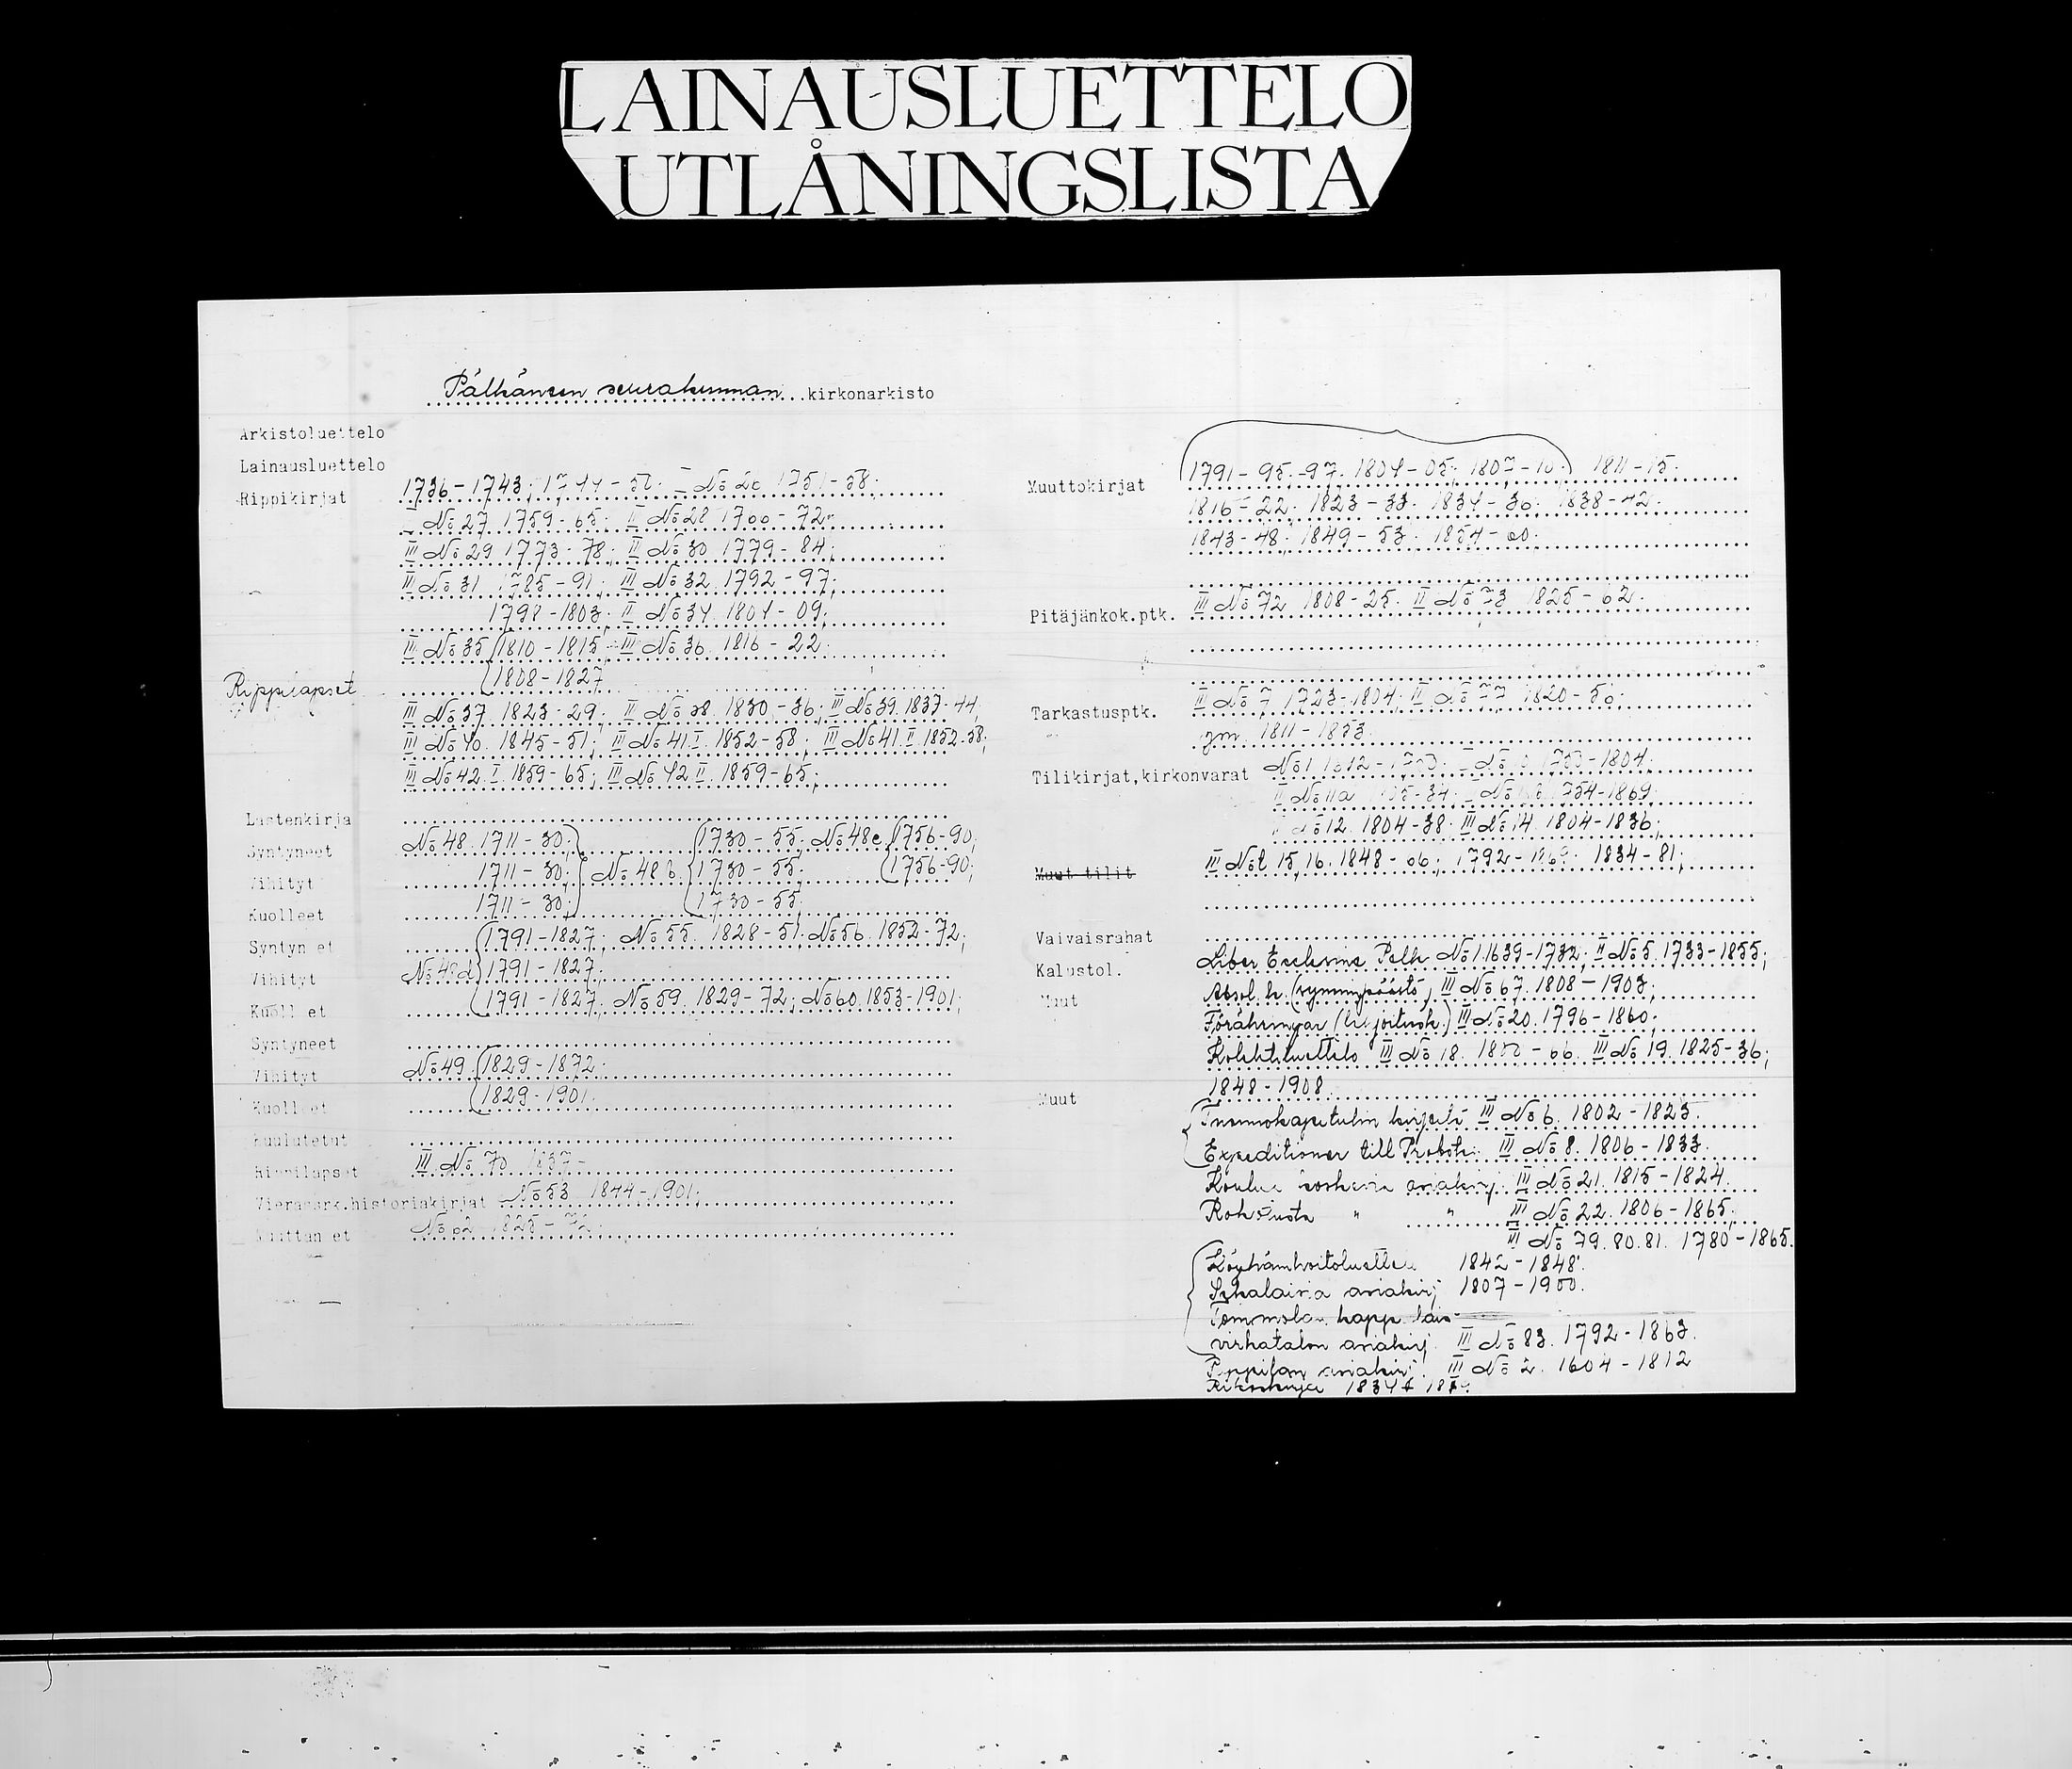 LAINAUSLUETTELO
UTLÅNINGSLISTA
Pälkäneen seurakunnan kirkonarkisto
Arkistoluettelo
Lainausluettelo
Rippikirjat 1736-1743; 1744-50. No 26 1751-58;
No 27 1759-65; II No 28 1766-72;
III No 29 1773-78; II No 30 1779-84;
II No 31 1785-91; III No 32 1792-97;
1798-1803; II No 34 1804-09;
II No 35 1810-1815; III No 36 1816-22;
Rippilapset 1808-1827
III No 37. 1823-29; II No 38. 1830-36; III No 39. 1837-44;
III No 40. 1845-51; III No 41.I. 1852-58; III No 41.II. 1852-58;
III No 42.I. 1859-65; III No 42 II. 1859-65;
Lastenkirja
Syntyneet No 48. 1711-30; 1730-55; No 48c 1756-90;
Vihityt 1711-30; No 48 b. 1730-55; 1756-90;
Kuolleet 1711-30; 1730-55;
Syntyneet 1791-1827; No 55. 1828-51. No 56. 1852-72;
Vihityt No 48d 1791-1827;
Kuolleet 1791-1827. No 59. 1829-72; No 60. 1853-1901;
Syntyneet
Vihityt No 49. 1829-1872.
Kuolleet 1829-1901.
Kuulutetut
Rippilapset III No 70 1837-
Vierasark.historiakirjat No 53 1844-1901;
Muuttaneet No 62 1825-72;
Muuttokirjat 1791-95-97. 1804-05; 1807-10; 1811-15;
1816-22. 1823-33. 1834-36. 1838-42.
1843-48. 1849-53. 1854-60.
Pitäjänkok.ptk. III No 72 1808-25. II No 73 1825-62.
Tarkastusptk. II No 7 1723-1804; II No 77 1820-56;
ym. 1811-1853.
Tilikirjat,kirkonvarat No 1 -1804;
II No 11a -34; 1754-1869;
No 12. 1804-38. III No 14. 1804-1836;
Muut tilit III No 15,16. 1848-66; 1792- 1834-81;
Vaivaisrahat
Kalustol. Liber Ecclesiae Pelk No 1. 1639-1732; II No 5. 1733-1855;
Muut Absol.k. (synninpäästö) III No 67. 1808-1903;
Föräkringar (kirjoitusk.) III No 20. 1796-1860;
Kolehtiluettelo III No 18. -66. III No 19. 1825-36;
1848-1908
Muut Tuomiokapitulin kirjeitä III No 6. 1802-1825.
Expeditioner till Probsten III No 8. 1806-1833.
Koulua koskevia asiakirj. III No 21. 1815-1824.
Rokotusta " " III No 22. 1806-1865.
III No 79. 80. 81. 1780-1865.
Köyhäinhoitoluettelo 1842-1848.
Sekalaisia asiakirj 1807-1900.
Tommolan kapp.lais-
virkatalon asiakirj. III No 83. 1792-1863.
Pappilan asiakirj. III No 2. 1604-1812
Rikoskirja